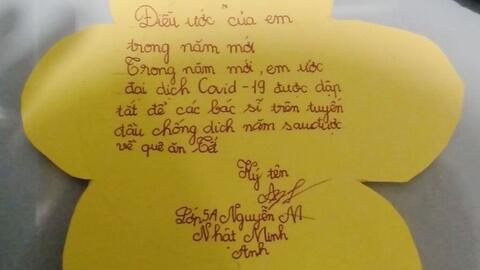 Điều ước của em
trong năm mới
Trong năm mới, em ước
đại dịch Covid-19 được dập
tắt để các bác sĩ trên tuyến
đầu chống dịch năm sau được
về quê ăn Tết
Ký tên
Lớp 5A Nguyễn
Nhật Minh
Anh